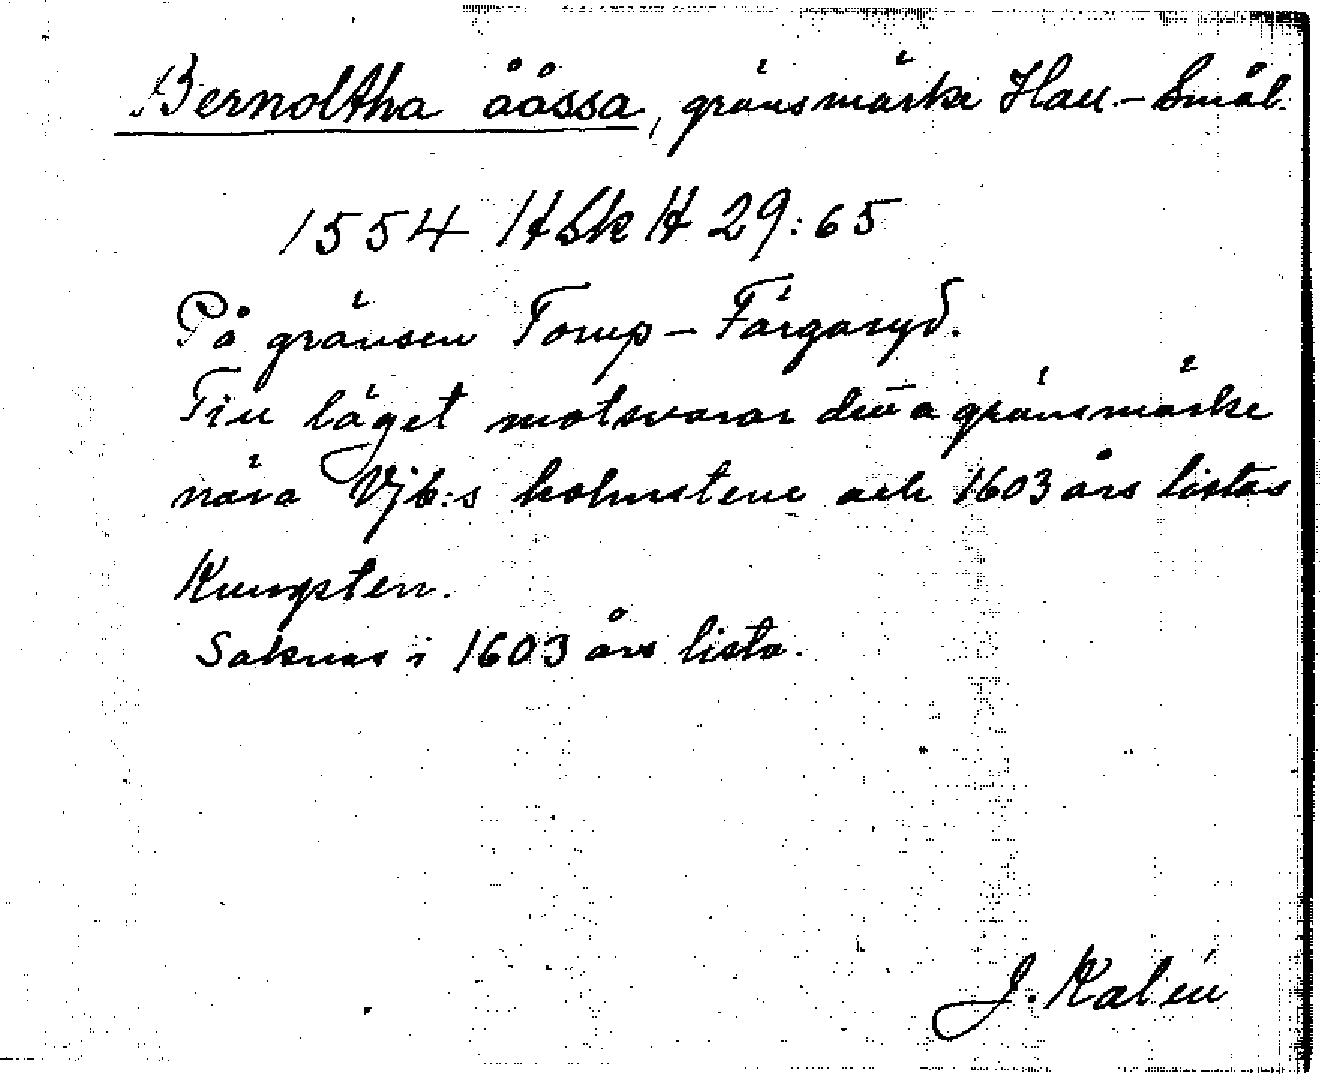 Bernoltha ååssa, gränsmärke Hall.-Smål.
1554 HSkH 29:65
På gränsen Torup – Färgaryd.
Till läget motsvarar detta gränsmärke
nära Vjb:s holmstene och 1603 års listas
Kungsten.
Saknas i 1603 års lista.
J. Kalén